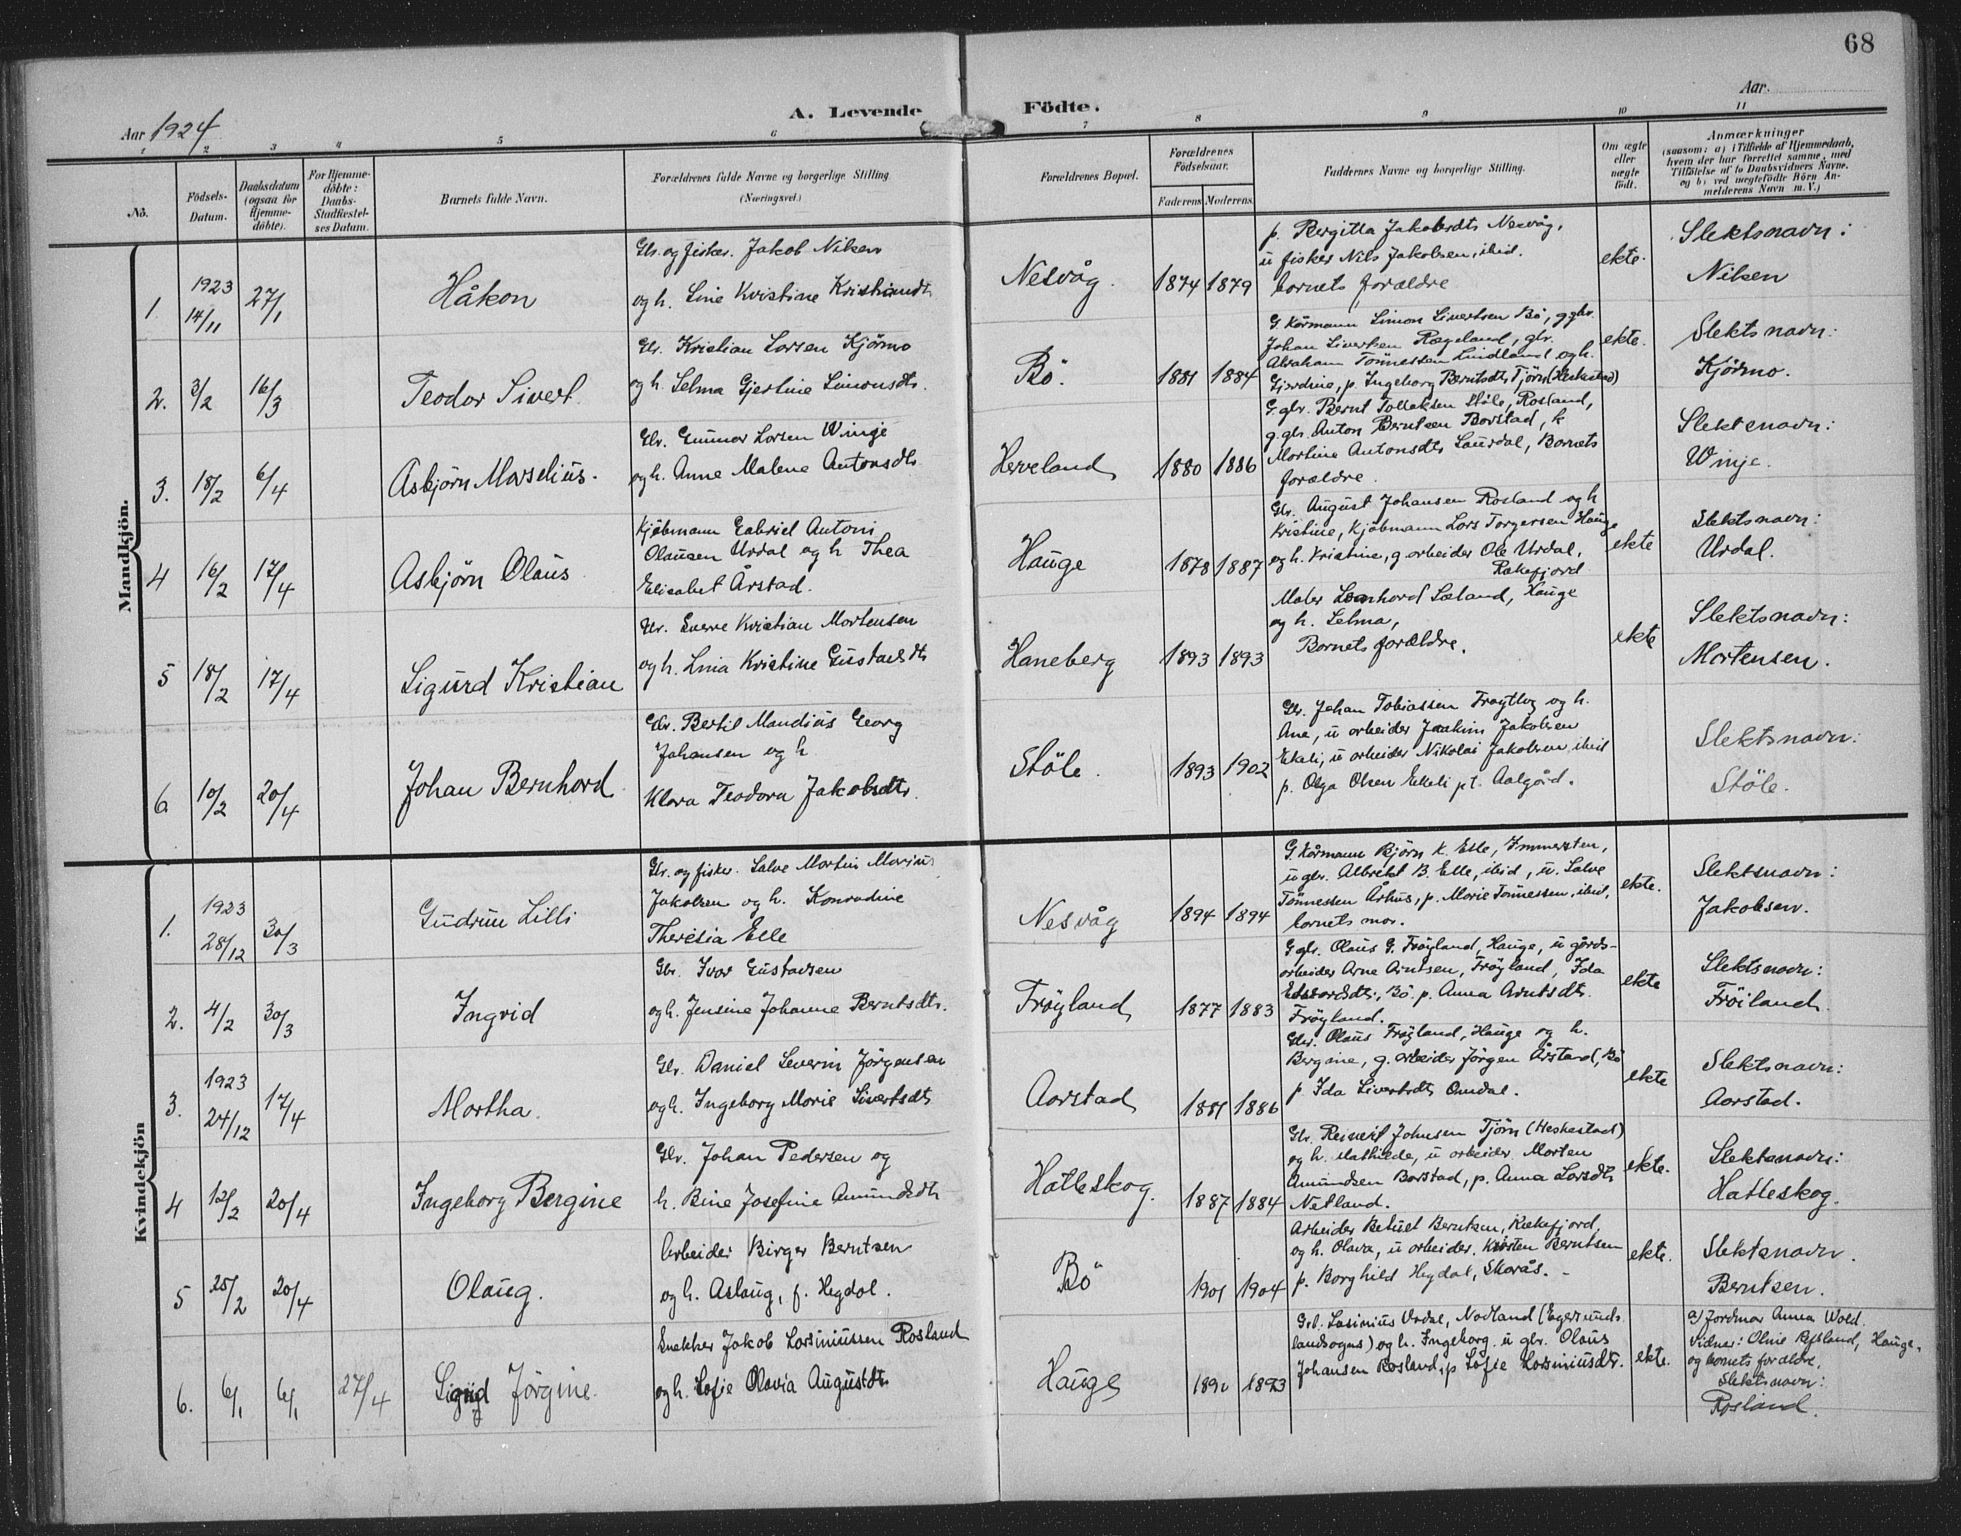 68
Aar 1924
A. Levende Födte.
Aar.
1 2 3 4 5 6 7 8 9 10 11
No.
Födsels-
Datum.
Daabsdatum
(ogsaa for
Hjemme-
döbte).
For Hjemme-
döbte:
Daabs-
Stadfæstel-
ses Datum.
Barnets fulde Navn.
Forældrenes fulde Navne og borgerlige Stilling.
(Næringsvei.)
Forældrenes Bopæl.
Forældrenes
Födselsaar.
Faderens Moderens.
Faddernes Navne og borgerlige Stilling.
Om ægte
eller
uægte
födt.
Anmærkninger
(saasom: a) i Tilfælde af Hjemmedaab,
hvem der har forrettet samme, med
Tilföielse af to Daabsvidners Navne.
og b) ved uægtefödte Börn An-
melderens Navn m. V.)
Mandkjön.
1. 1923 14/11 27/1 Håkon
Gbr. og fisker. Jakob Nilsen
og h. Sine Kristine
Nesvåg. 1874 1879
p. Bergitta Jakobsdtr Nesvåg,
u fisker Nils Jakobsen, ibid.
barnets forældre
ekte.
Slektsnavn:
Nilsen
2. 3/2 16/3 Teodor Sivert
Gbr. Kristian Larsen Kjörmo
og h. Selma Gjertine Simonsdtr.
Bö. 1881 1884
G. kårmann Simon Sivertsen Bö, g gbr.
Johan Sivertsen Rægeland, gbr.
Abraham Tönnessen Lindland og h.
Gjerdine, p. Ingeborg Berntsdtr Tjörn (Heskestad)
ekte.
Slektsnavn:
Kjörmo.
3. 18/2 6/4 Asbjörn Marselius.
Gbr. Gunnar Larsen Winje
og h. Anne Malene Antonsdtr
Herveland 1880 1886
G. gbr. Bernt Tollaksen Stöle, Rosland,
g. gbr. Anton Berntsen Barstad, h
Martine Antonsdtr Laurdal, Barnets
forældre.
Slektsnavn:
Winje.
4 16/2 17/4 Asbjörn Olaus
Kjöbmann Gabriel Antoni
Olausen Urdal og h Thea
Elisabet Årstad.
Hauge 1878 1887
Gbr. August Johansen Rosland og h
Kristine, Kjöbmann Lars Torgersen Hauge
og h. Kristine, g. arbeider Ole Urdal,
Rækefjord
ekte
Slektsnavn:
Urdal.
5 18/2 17/4 Sigurd Kristian
Gbr. Sverre Kristian Mortensen
og h. Lina Kristine Gustavsdtr
Haneberg 1893 1893
Maler Leonhard Sæland, Hauge
og h. Selma,
Barnets forældre.
ekte
Slektsnavn:
Mortensen.
6. 10/2 20/4 Johan Bernhard
Gbr. Bertil Mandius Georg
Johansen og h.
Klara Teodora Jakobsdtr.
Stöle. 1893 1902
Gbr. Johan Tobiassen og h.
Ane, u arbeider Joakim Jakobsen
Eikeli, u arbeider Nikolai Jakobsen ibid
p. Olga Olsen Eikeli pt. Aalgård.
Slektsnavn:
Stöle.
Kvindekjön
1. 1923 28/12 30/3 Gudrun Lilli
Gbr. og fisker. Salve Martin Marius
Jakobsen og h. Konradine
Theresia Elle
Nesvåg 1894 1894
G. Kårmann Björn K. Elle, Immersten,
u gbr. Albrikt B. Elle, ibid, u. Salve
Tönnessen Århus, p. Marie Tönnessen, ibid,
barnets mor.
ekte.
Slektsnavn:
Jakobsen.
2. 4/2 30/3 Ingrid
Gbr. Ivar Gustavsen
og h. Jensine Johanne Berntsdtr.
Fröyland 1877 1883
G gbr. Olaus G. Fröyland, Hauge, u gårds-
arbeider Arne Arntsen, Fröyland, Ida
Edvardsdtr., Bö. p. Anna Arntsdtr.
Fröyland.
ekte
Slektsnavn:
Fröiland.
3. 1923 24/12 17/4 Martha.
Gbr. Daniel Severin Jörgensen
og h. Ingeborg Marie Sivertsdtr
Aarstad 1881 1886
Gbr. Olaus Fröyland, Hauge og h.
Bergine, g. arbeider Jörgen Årstad, Bö
p Ida Sivertsdtr Omdal.
ekte
Slektsnavn:
Aarstad.
4 12/2 20/4 Ingeborg Bergine
Gbr. Johan Pedersen og
h. Bine Josefine Amundsdtr
Hatleskog. 1887 1884
Gbr. Reinert Johnsen Tjörn (Heskestad)
og h. Mathilde, u arbeider Morten
Amundsen Barstad, p. Anna Larsdtr
Netland.
ekte.
Slektsnavn:
Hatleskog.
5 25/2 20/4 Olaug.
Arbeider Birger Berntsen
og h. Aslaug, f. Hegdal.
Bö 1901 1904
Arbeider Betuel Berntsen, Rækefjord,
og h. Olava, u arbeider Karsten Berntsen
p. Borghild Hegdal, Skarås.
ekte.
Slektsnavn.
Berntsen.
6. 6/1 6/1 27/4 Sigrid Jörgine.
Snekker Jakob Larsiniussen Rosland
og h. Sofie Olavia Augustdtr
Hauge 1890 1893
Grb. Lasinius Urdal, Nodland (Egersunds
landsogns) og h. Ingeborg. u gbr. Olaus
Johansen Rosland, p Sofie Larsiniusdtr.
ekte.
a) Jordmor Anna Wold.
Vidner: Oline Rosland, Hauge,
og barnets forældre,
Slektsnavn:
Rosland.